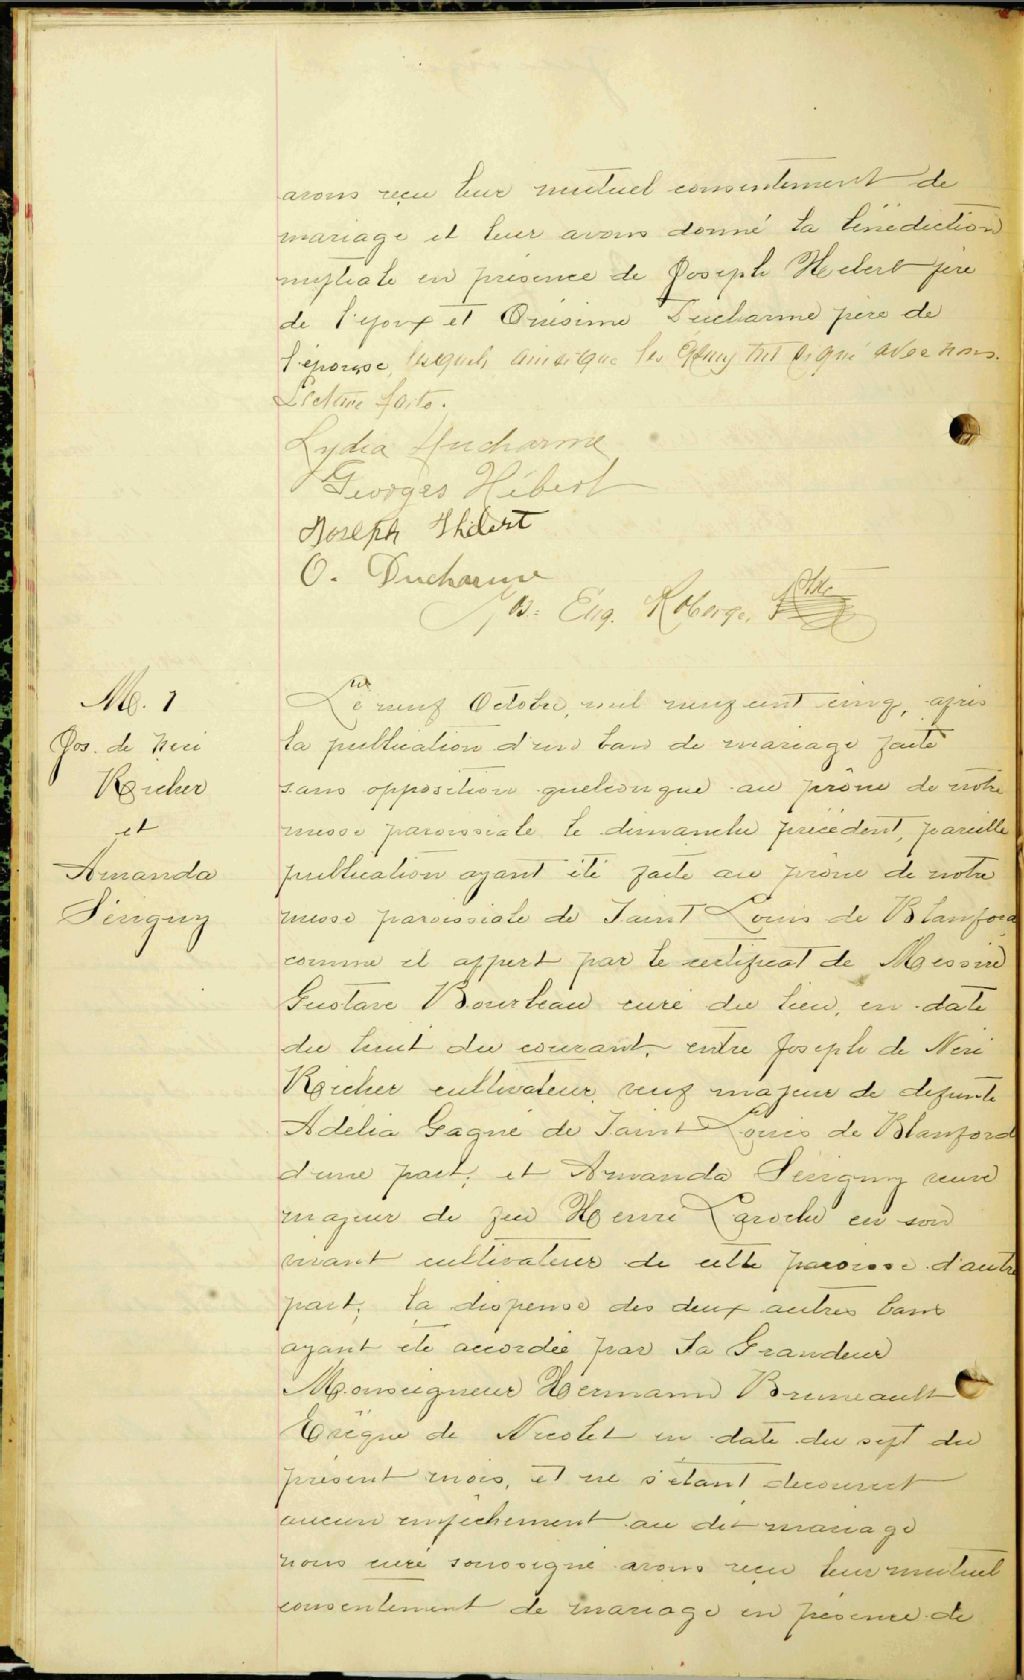 avons reçu leur mutuel consentement de
mariage et leur avons donné la bénédiction
nuptiale en présence de Joseph Hebert père
de l'époux et Onésime Ducharme père de
l'épouse, lesquels ainsi que les époux ont signé avec nous.
Lecture faite.
Lydia Ducharme
Georges Hébert
Joseph Hébert
O. Ducharme
Js. Eug. Roberge, Ptre
M. 1
Jos. de Neri
Richer
et
Amanda
Sévigny
Le neuf Octobre, mil neuf cent cinq, après
la publication d'un ban de mariage faite
sans opposition quelconque au prône de notre
messe paroissiale le dimanche précédent, pareille
publication ayant été faite au prône de notre
messe paroissiale de Saint Louis de Blanford
comme il appert par le certificat de Messire
Gustave Bourbeau curé du lieu, en date
du huit du courant, entre Joseph de Neri
Richer cultivateur, veuf majeur de defunte
Adélia Gagné de Saint Louis de Blanford
d'une part; et Amanda Sévigny veuve
majeur de feu Henri Laroche en son
vivant cultivateur de cette paroisse d'autre
part; la dispense des deux autres bans
ayant été accordée par Sa Grandeur
Monseigneur Hermann Bruneault
Evêque de Nicolet en date du sept du
présent mois, et ne s'étant decouvert
aucun empêchement au dit mariage
nous curé soussigné avons reçu leur mutuel
consentement de mariage en présence de